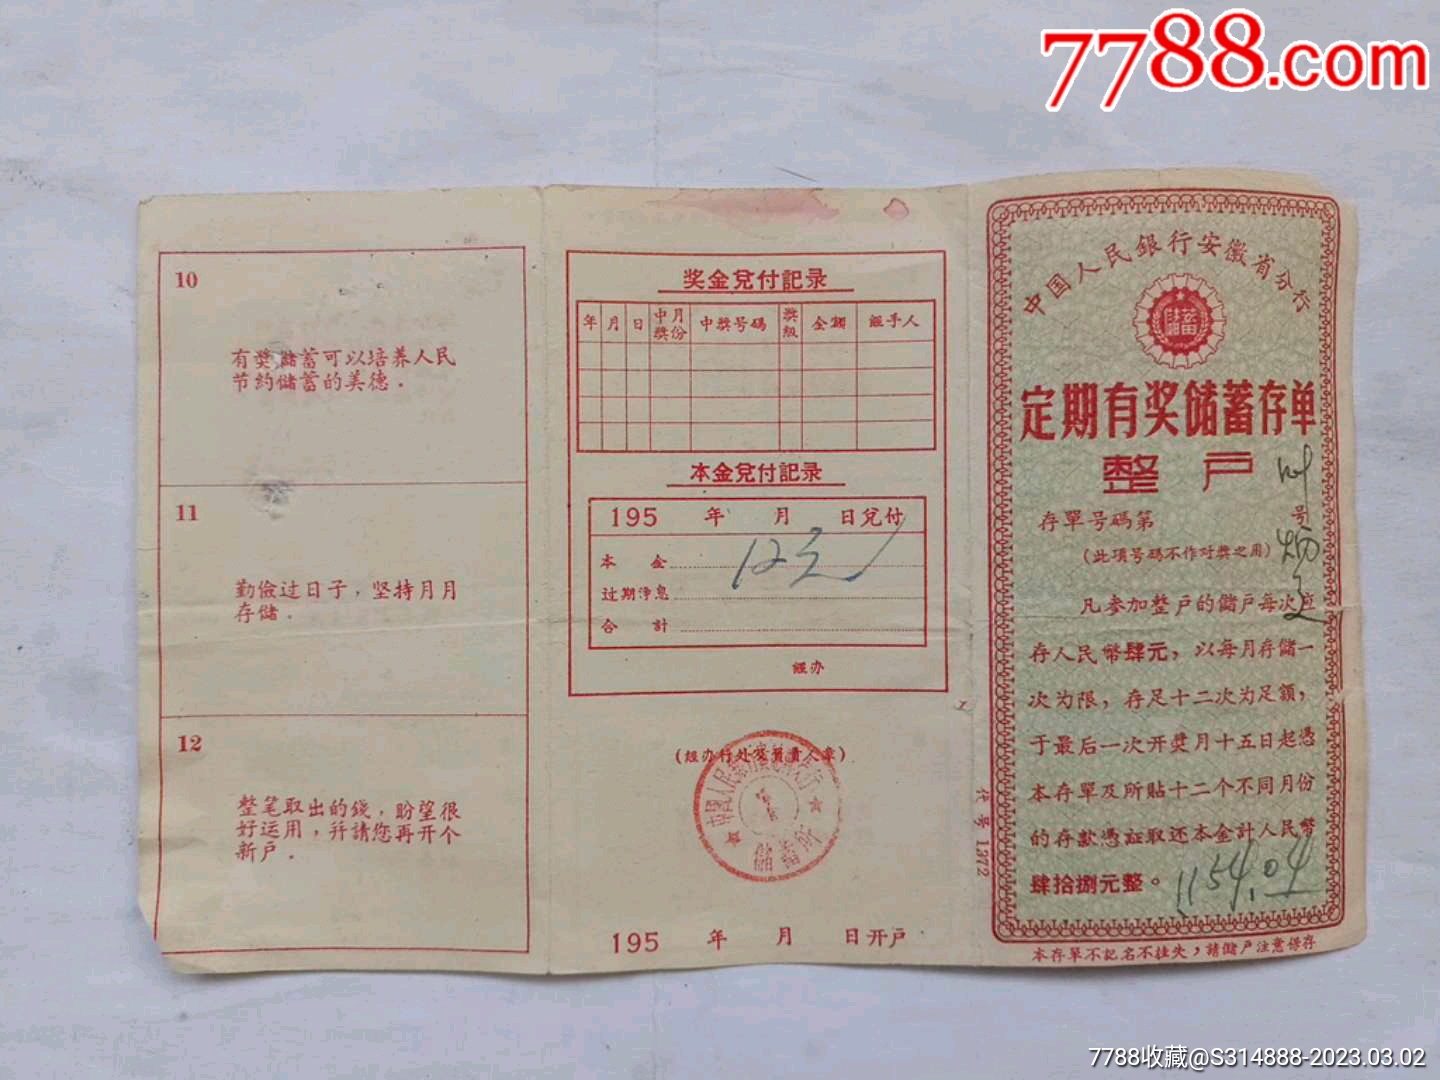 7788.com
10
有奖储蓄可以培养人民
节約储蓄的美德.
11
勤儉过日子，坚持月月
存储。
12
整笔取出的錢，盼望很
好运用，并請您再开个
新戶。
奖金兌付記录
年 月 日 中獎月份 中獎号碼 獎級 金額 經手人
本金兌付記录
195 年 月 日兌付
本 金 12元
过期淨息
合 計
經办
(經办行处及負責人章)
储蓄所
195 年 月 日开戶
中国人民銀行安徽省分行
儲蓄
定期有奖储蓄存单
整戶
存單号碼第 号
(此項号碼不作对獎之用)
凡参加整戶的儲戶每次应
存人民幣肆元，以每月存儲一
次为限，存足十二次为足额，
于最后一次开獎月十五日起憑
本存單及所貼十二个不同月份
的存款憑証取还本金計人民幣
肆拾捌元整。
1154.04
代号1972
本存單不記名不挂失，請儲戶注意保存
7788收藏@S314888-2023.03.02